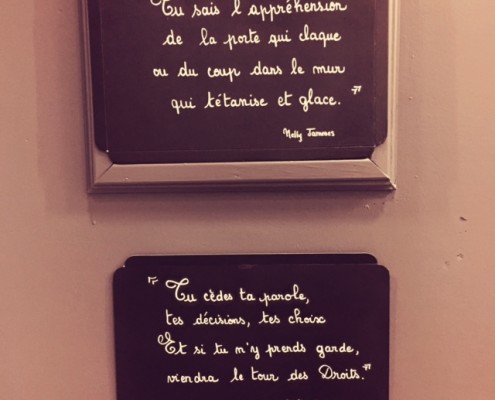 Tu sais l'appréhension
de la porte qui claque
ou du coup dans le mur
qui tétanise et glace. "
Nelly Jammes
" Tu cèdes ta parole,
tes décisions, tes choix
Et si tu n'y prends garde,
viendra le tour des Droits."